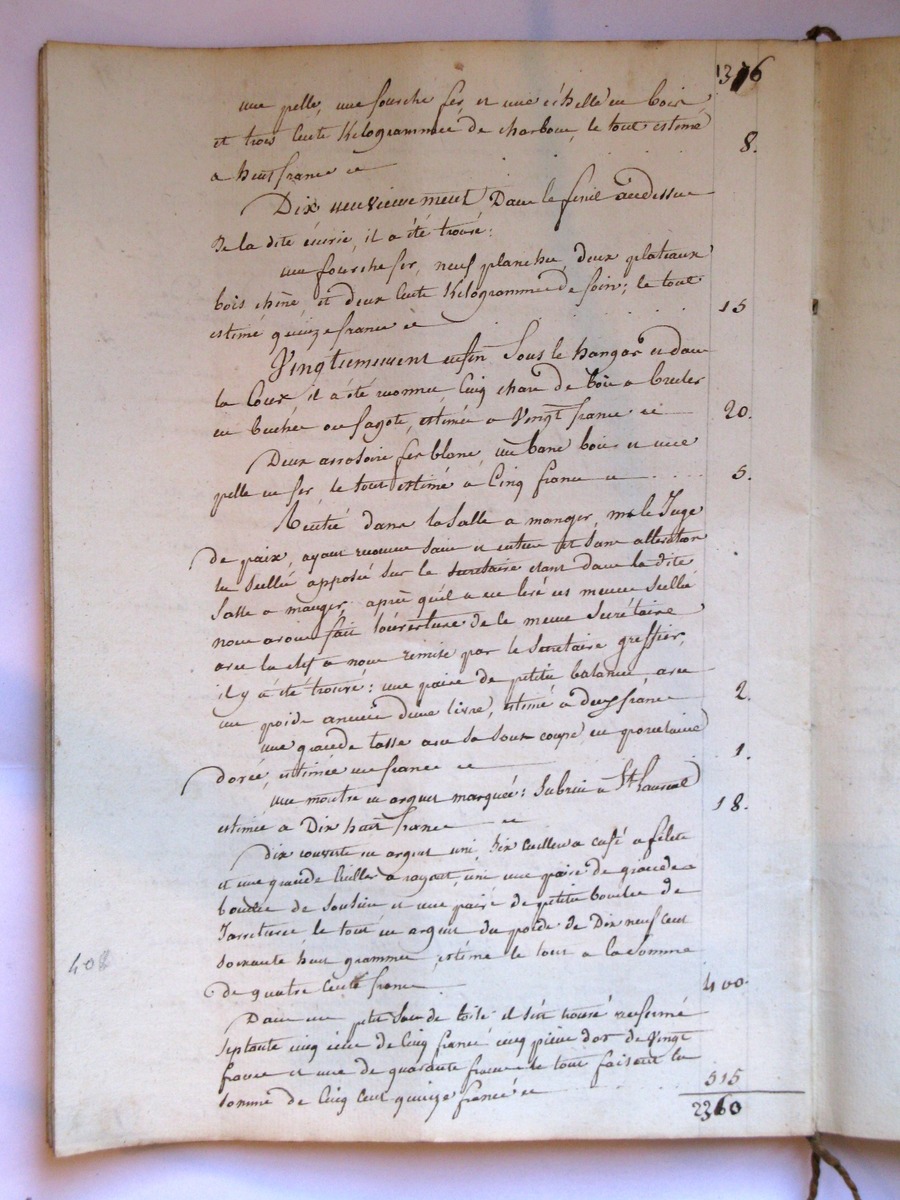 1376
une pelle, une fourche fer, et une échelle en bois,
et trois cents Kilogrammes de charbon, le tout estimé
a huit francs ci 8.
Dix neuvièmement Dans le fenil audessus
De la dite écurie, il a été trouvé:
une fourche fer, neuf planches, deux plateaux
bois chêne, et deux cents Kilogrammes de foin; le tout
estimé quinze francs ci 15
Vingtiemement enfin Sous le hangar et dans
la Cour, il a été reconnu, Cinq chars de bois a bruler
en buches ou fagots, estimés a Vingt francs ci 20.
Deux arrosoirs fer blanc, un banc bois et une
pelle en fer, le tout estimé a Cinq francs ci 5.
Rentré dans la Salle a manger, mr le Juge
de paix, ayant reconnu sain et entier et sans alteration
les scellés apposés sur le secretaire etant dans la dite
Salle a manger, après qu'il a eu levé ces memes scellés
nous avons fait louverture de le meme Secrétaire
avec la clef a nous remise par le Secretaire greffier,
il y a été trouvé: une paire de petites balances, avec
un poids ancien dune livre, estimé a deux francs 2.
une grande tasse avec sa sous coupe, en porcelaine
dorée, estimée un franc ci 1.
une montre en argent marquée: Subrin a St Laurent
estimée a Dix huit francs ci 18.
dix couverts en argent uni, Six cuilleres a café a filets
et une grande Cuiller a ragout, uni une paire de grandes
boucles de Souliers et une paire de petites boucles de
Jarretieres, le tout en argent du poids de Dix neuf cent
soixante huit grammes, estimé le tout a la somme
408
de quatre Cents francs 400.
Dans un petit Sac de toile il s'est trouvé renfermé
Septante cinq écus de Cinq francs cinq pieces dor de Vingt
francs et une de quarante francs le tout faisant la
somme de Cinq Cent quinze francs ci 515
2360